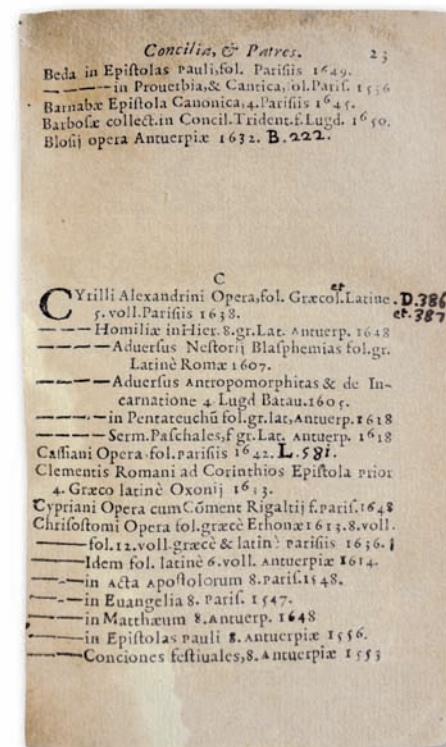 Concilia, & Patres. 23
Beda in Epiſtolas Pauli, fol. Pariſiis 1649.
— — — — in Prouerbia, & Cantica, fol. Pariſ. 1536
Barnabæ Epiſtola Canonica, 4. Pariſiis 1645.
Barboſæ collect. in Concil. Trident. f. Lugd. 1650.
Bloſij opera Antuerpiæ 1632. B.222.
C
CYrilli Alexandrini Opera, fol. Græcol. et Latine. D.386
5. voll. Pariſiis 1638. et. 387
— — — Homiliæ in Hier. 8. gr. Lat. Antuerp. 1648
— — — — Aduerſus Neſtorij Blaſphemias fol. gr.
Latinè Romæ 1607.
— — — — Aduerſus Antropomorphitas & de In-
carnatione 4 Lugd Batau. 1605.
— — — — in Pentateuchū fol. gr. lat, Antuerp. 1618
— — — — Serm. Paſchales, f gr. Lat. Antuerp. 1618
Caſſiani Opera fol. Pariſiis 1642. L.581.
Clementis Romani ad Corinthios Epiſtola prior
4. Græco latinè Oxonij 1633.
Cypriani Opera cum Cōment Rigaltij f. Pariſ. 1648
Chriſoſtomi Opera fol. græcè Ethonæ 1613. 8. voll.
——— fol. 12. voll. græcè & latinè Pariſiis 1636.
——— Idem fol. latinè 6. voll. Antuerpiæ 1614.
— — — in Acta Apoſtolorum 8. Pariſ. 1548.
— — — in Euangelia 8. Pariſ. 1547.
——— in Matthæum 8. Antuerp. 1648
——— in Epiſtolas Pauli 8. Antuerpiæ 1556.
——— Conciones feſtiuales, 8. Antuerpiæ 1553